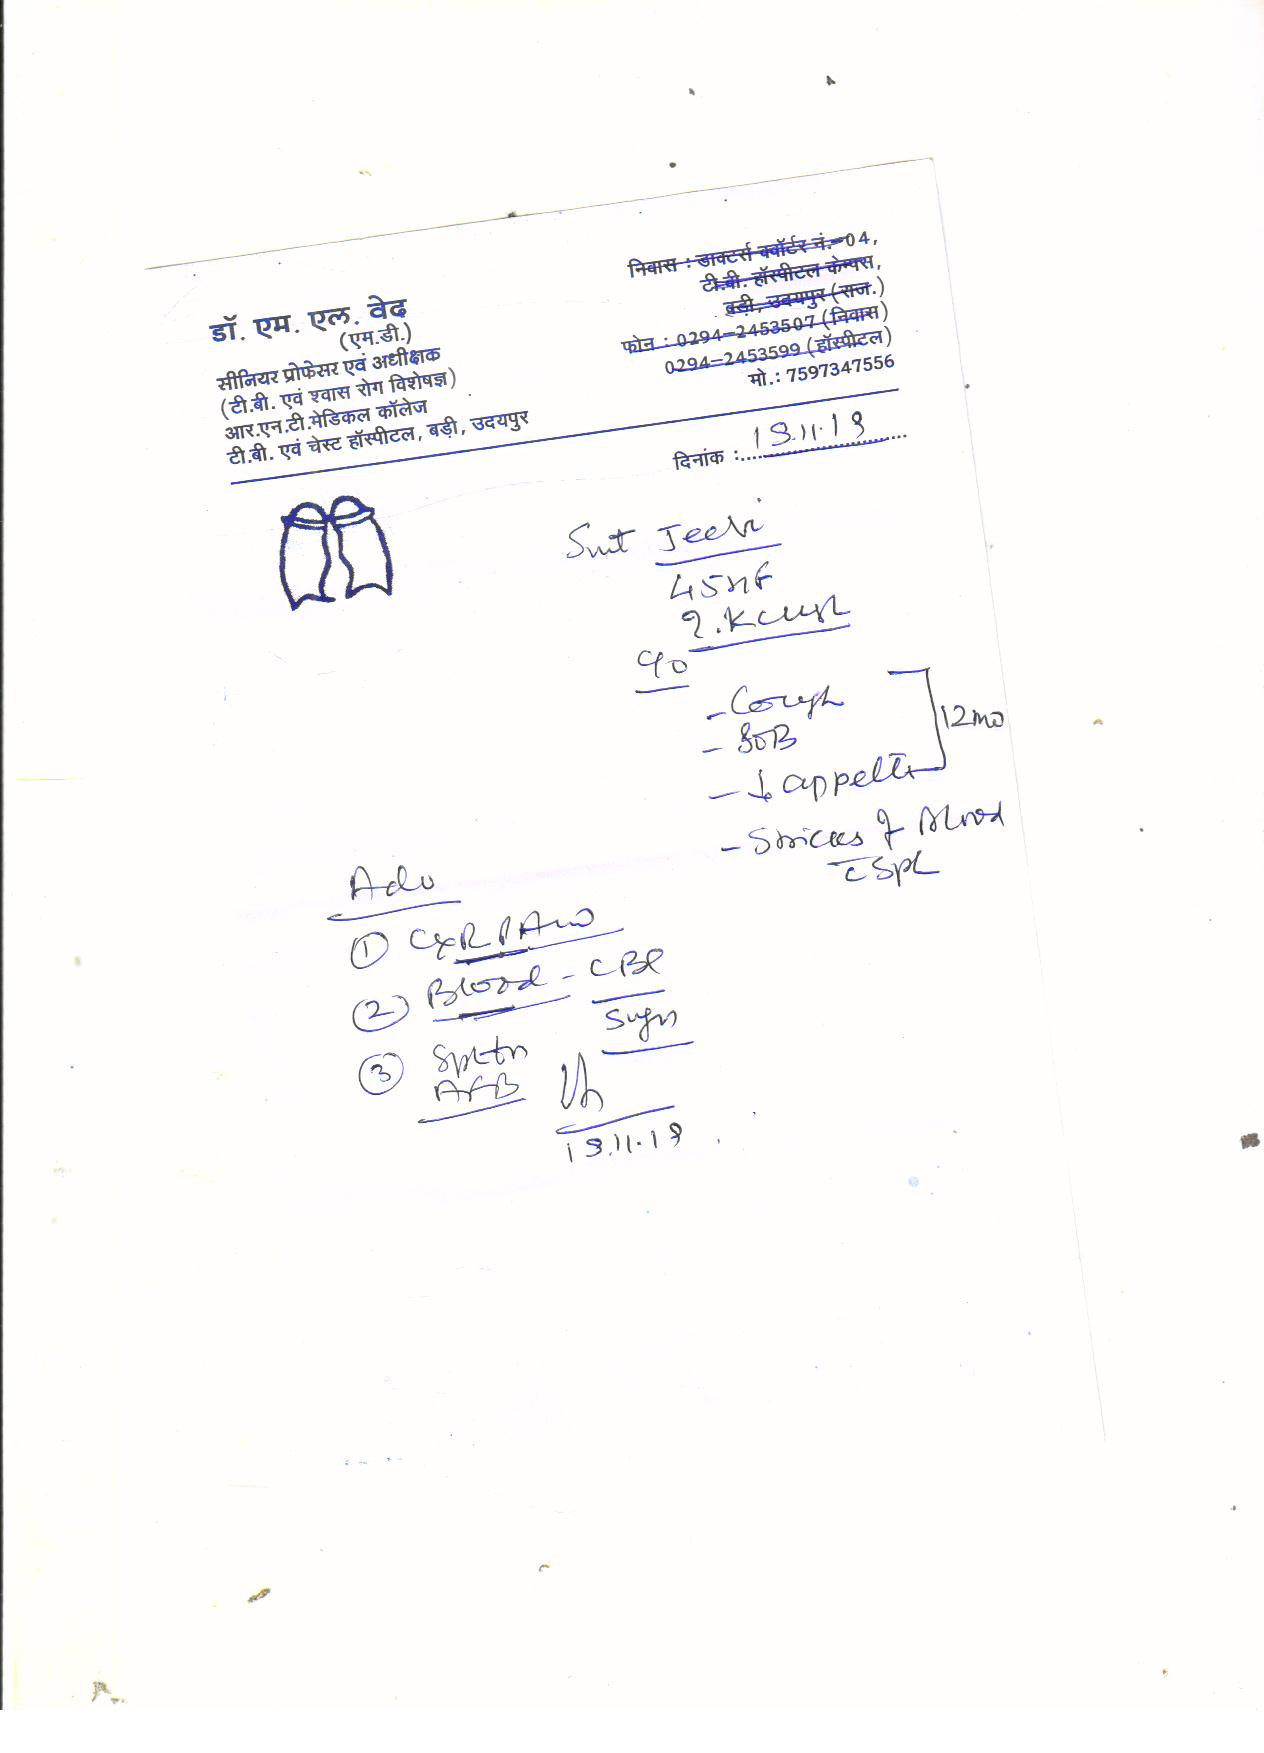 डॉ. एम. एल. वेद
(एम.डी.)
सीनियर प्रोफेसर एवं अधीक्षक
(टी.बी. एवं श्वास रोग विशेषज्ञ)
आर.एन.टी.मेडिकल कॉलेज
टी.बी. एवं चेस्ट हॉस्पीटल, बड़ी, उदयपुर
निवास : डाक्टर्स क्वॉर्टर नं.-04,
टी.बी. हॉस्पीटल केम्पस,
बड़ी, उदयपुर (राज.)
फोन : 0294-2453507 (निवास)
0294-2453599 (हॉस्पीटल)
मो.: 7597347556
दिनांक :
Smt
C/O
- Cough
- SOB
12 mo
- ↓ appetite
- Streaks of Blood
Adv
① CXR PA
② Blood - CBC
Sugar
③ Sputum
AFB